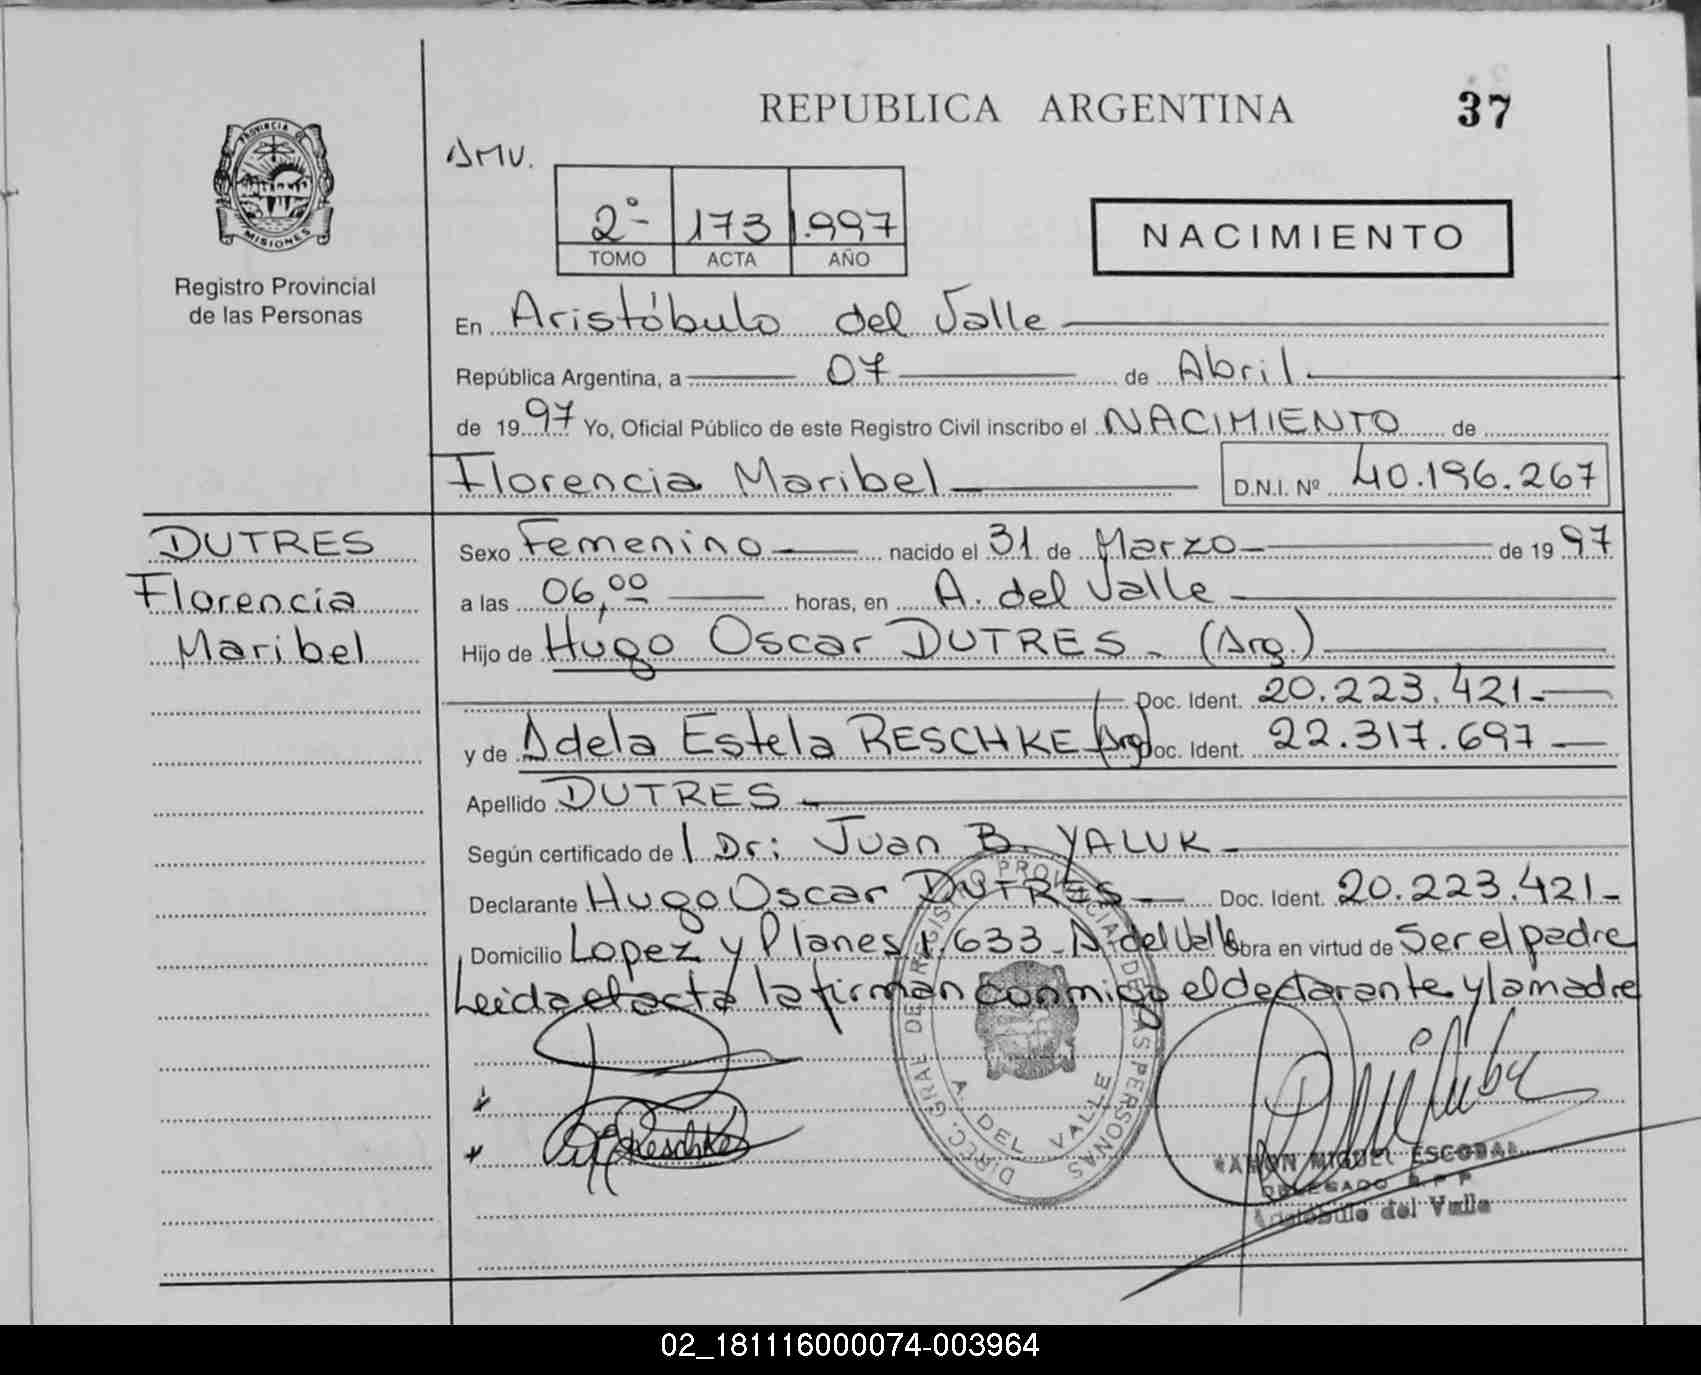 REPUBLICA ARGENTINA
37
PROVINCIA DE
MISIONES
Registro Provincial
de las Personas
AMV.
2º- 173 1.997
TOMO ACTA AÑO
NACIMIENTO
En Aristóbulo del Valle
República Argentina, a 07 de Abril
de 1997 Yo, Oficial Público de este Registro Civil inscribo el NACIMIENTO de
Florencia Maribel D.N.I. Nº 40.196.267
DUTRES
Florencia
Maribel
Sexo Femenino nacido el 31 de Marzo de 1997
a las 06,00 horas, en A. del Valle
Hijo de Hugo Oscar DUTRES - (Arg.)
Doc. Ident. 20.223.421-
y de Adela Estela RESCHKE (Arg) Doc. Ident. 22.317.697
Apellido DUTRES
Según certificado de l Dr: Juan B. YALUK
Declarante Hugo Oscar DUTRES Doc. Ident. 20.223.421-
Domicilio Lopez y Planes 1.633 - A. del Valle Obra en virtud de Ser el padre
Leida el acta la firman conmigo el declarante y la madre
DIREC. GRAL DE REGISTRO PROVINCIAL DE LAS PERSONAS
A. DEL VALLE
Reschke
RAMON MIGUEL ESCOBAR
DELEGADO R.P.P.
Aristóbulo del Valle
02_181116000074-003964